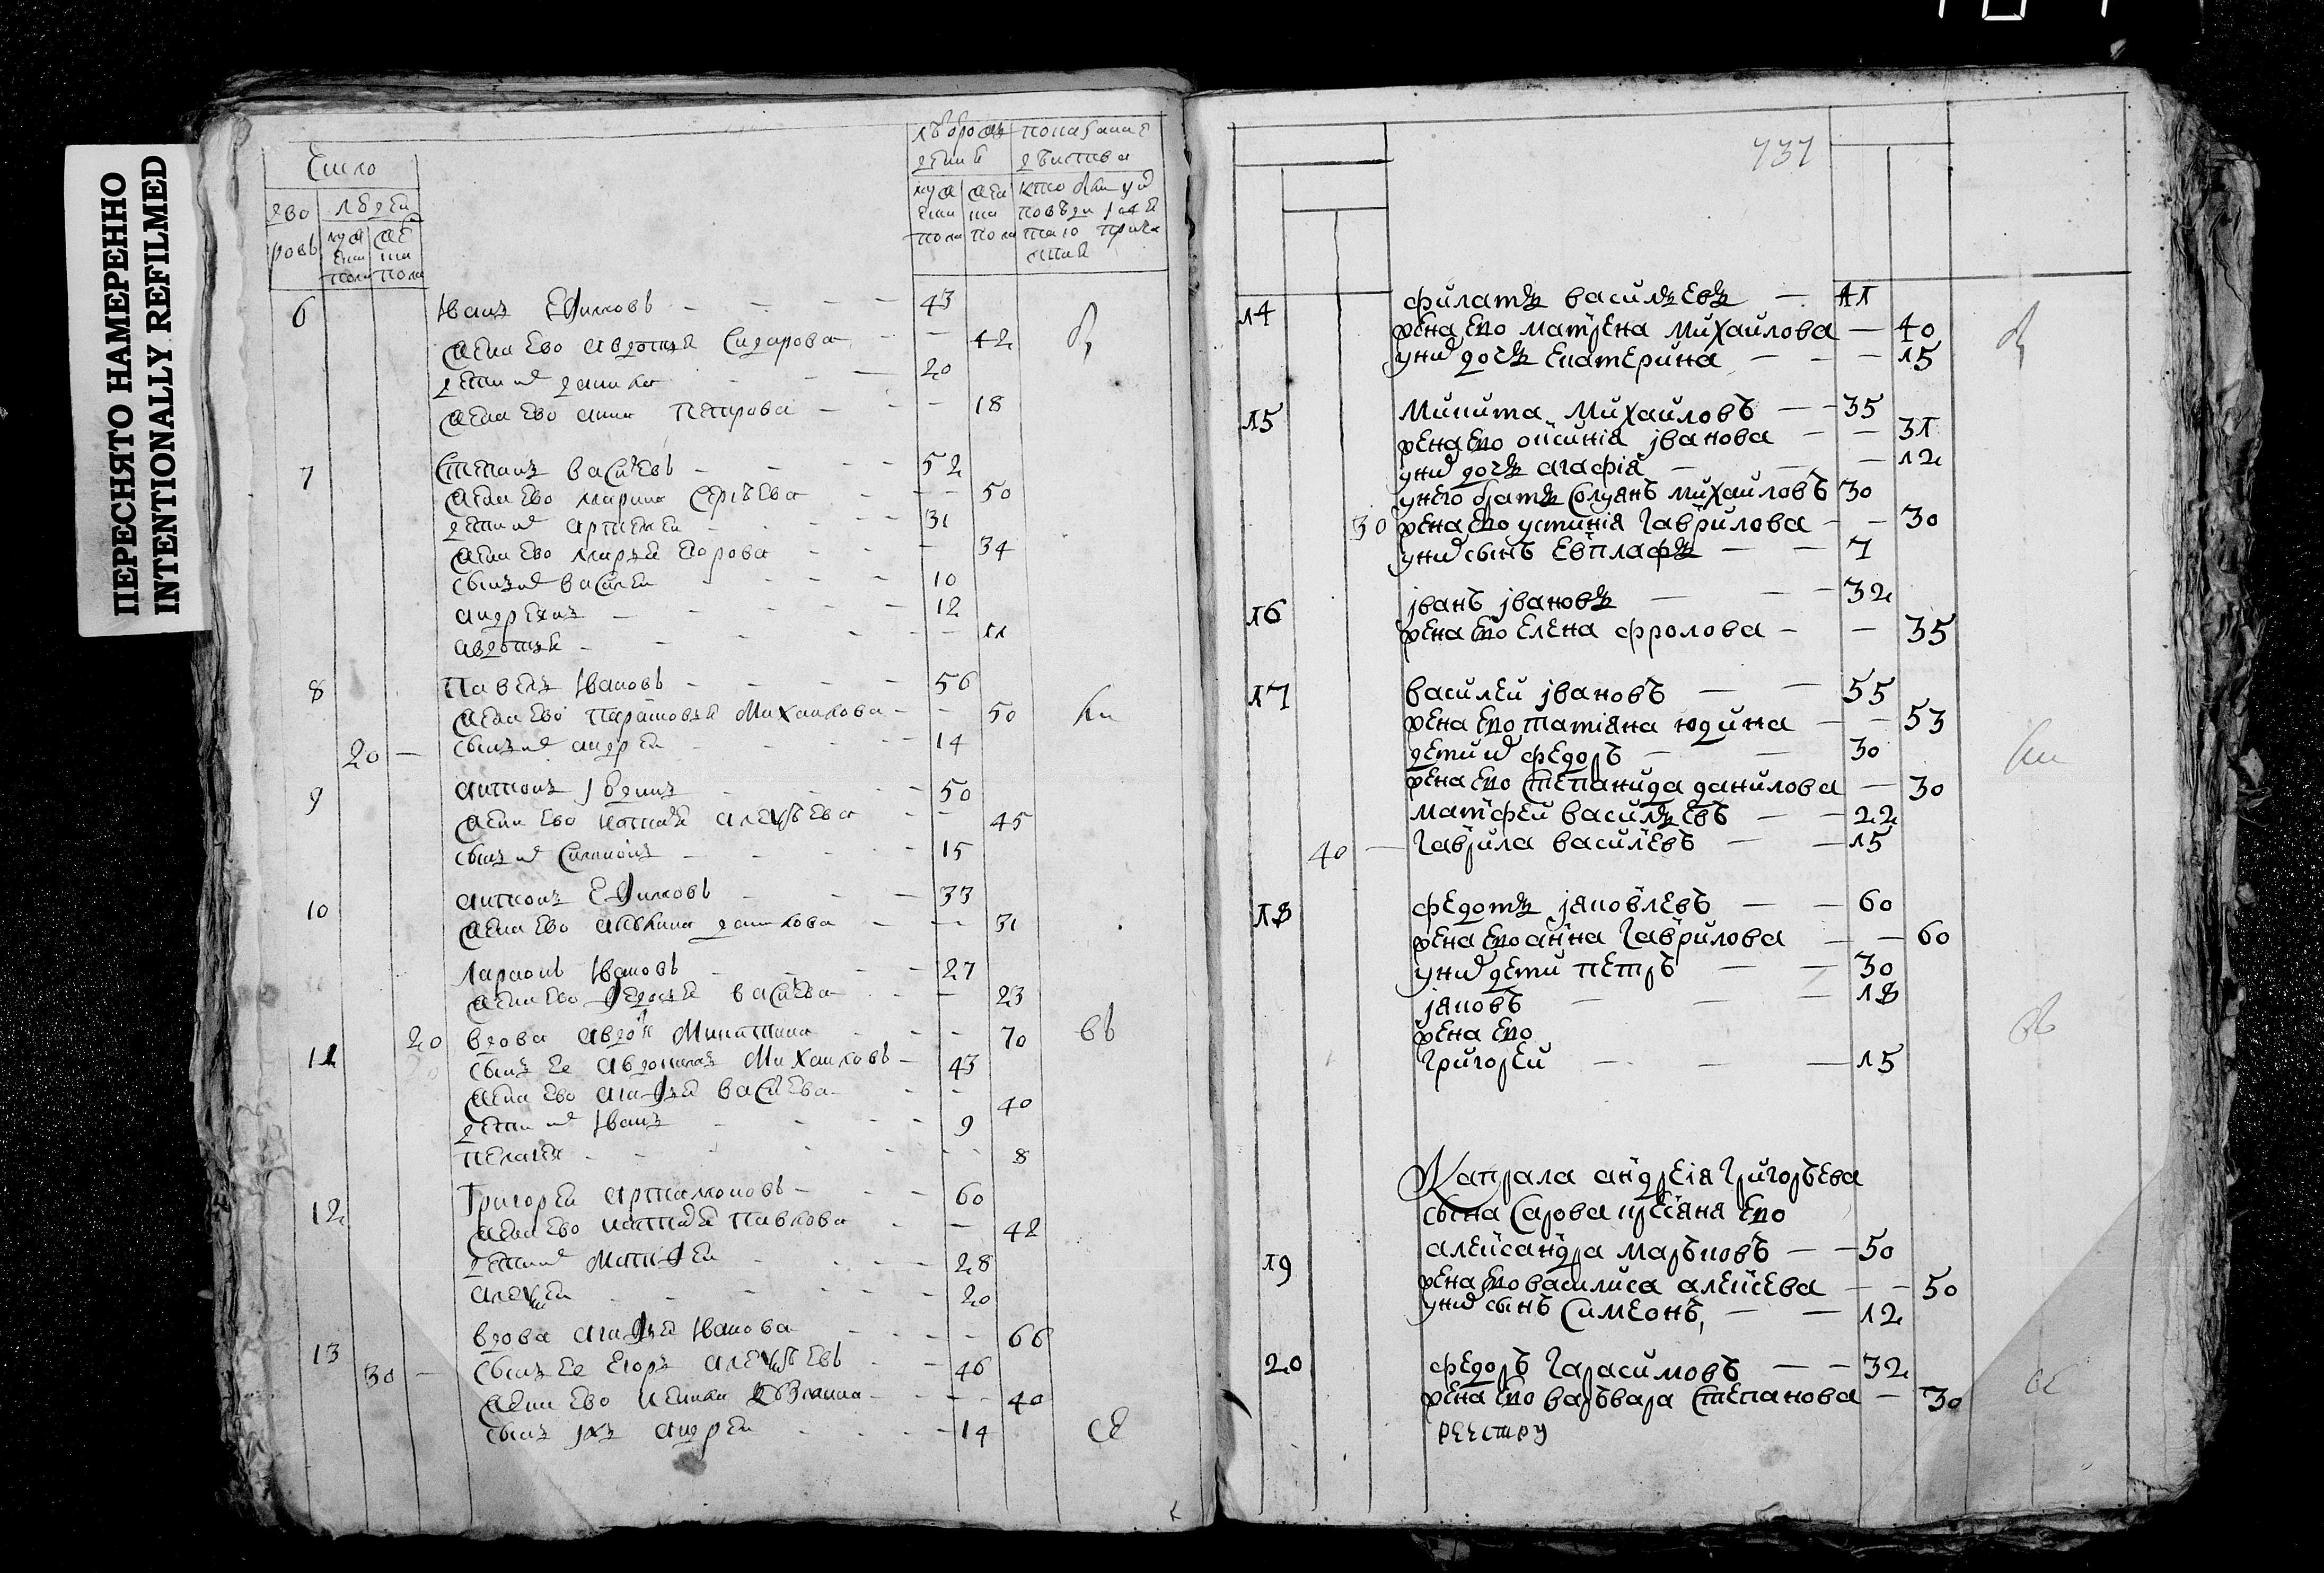 ПЕРЕСНЯТО НАМЕРЕННО
INTENTIONALLY REFILMED
Число
дво
ровъ
людей
муж
еска
пола
жен
ска
пола
лета от рож
дения
муж
еска
пола
жен
ска
пола
показание
действа
кто был у и
споведи и свя
таго прича
стия
6 Иванъ Ефимовъ — 43
жена ево авдотья Сидарова — 42
дети их данила — 20
жена ево анна Петрова — 18
7 Степанъ васильевъ — 52
жена ево марина Сергеева — 50
дети их артемеи — 31
жена ево марья Егорова — 34
сынъ их василеи — 10
андреянъ — 12
авдотья — 11
8 Павелъ Ивановъ — 56
жена ево парасковья Михаилова — 50
20 — сынъ их андреи — 14
9 антонъ — 50
жена ево наталья алексеева — 45
сынъ их Симионъ — 15
10 антонъ Ефимовъ — 33
жена ево акулина данилова — 31
Ларионъ Ивановъ — 27
жена ево федосья васильева — 23
20 вдова авдотья Микитина — 70
11 сынъ ее авдокимъ Михаиловъ — 43
жена ево агафья васильева — 40
дети их Иванъ — 9
пелагея — 8
12 Григореи артамоновъ — 60
жена ево наталья павлова — 42
дети их Матфеи — 28
алексеи — 20
13 вдова агафья Иванова — 66
30 — сынъ ее Егоръ алексеевъ — 46
жена ево — 40
сынъ ихъ андреи — 14
737
14 филатъ васильевъ — 41
жена ево матрена михаилова — 40
у них дочь екатерина — 15
15 Микита Михаиловъ — 35
жена ево оксиния иванова — 31
у них дочь агафия — 12
у него братъ Солуянъ михаиловъ 30
30 жена ево устиния Гаврилова — 30
у них сынъ евплафъ — 7
16 иванъ ивановъ — 32
жена ево Елена фролова — 35
17 василеи ивановъ — 55
жена ево татияна юдина — 53
дети их федоръ — 30
жена ево Степанида данилова — 30
матфеи васильевъ — 22
40 — Гаврила василевъ — 15
18 федотъ яковлевъ — 60
жена ево анна Гаврилова — 60
у них дети петръ — 30
яковъ — 18
жена ево
григореи — 15
Капрала андреия Григорьева
сына Сарова крестьяня ево
19 александра марковъ — 50
жена ево василиса алексеева — 50
у них сынъ Симеонъ, — 12
20 федоръ Гарасимовъ — 32
жена ево варъвара Степанова — 30
реестру